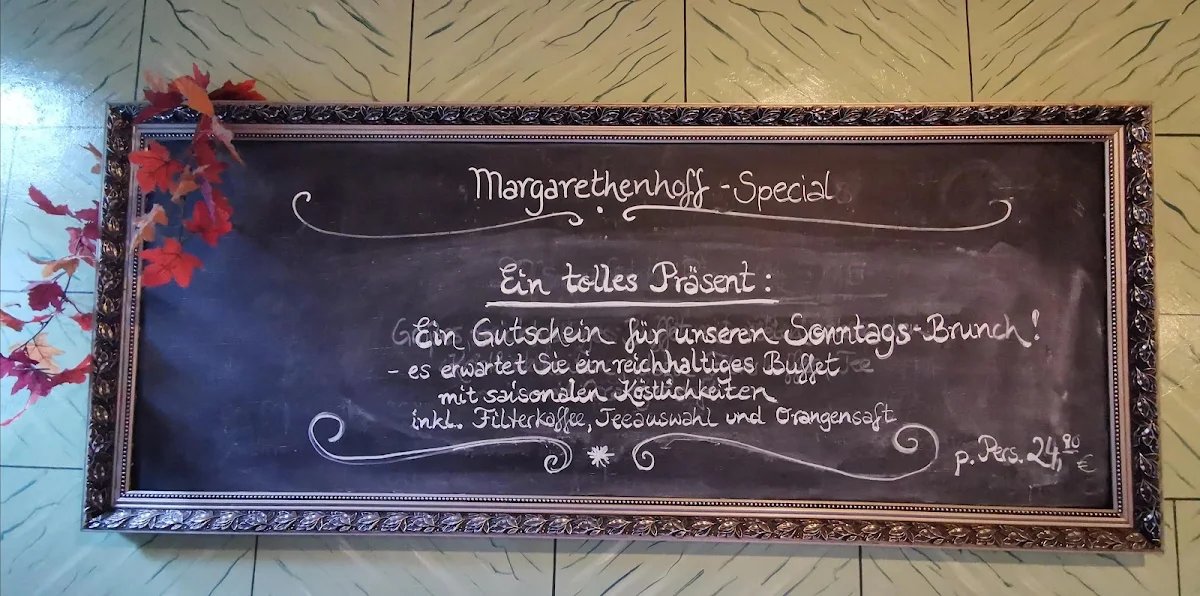 Margarethenhoff - Special
Ein tolles Präsent :
Ein Gutschein für unseren Sonntags-Brunch!
- es erwartet Sie ein reichhaltiges Buffet
mit saisonalen Köstlichkeiten
inkl. Filterkaffee, Teeauswahl und Orangensaft
p. Pers. 24,90 €